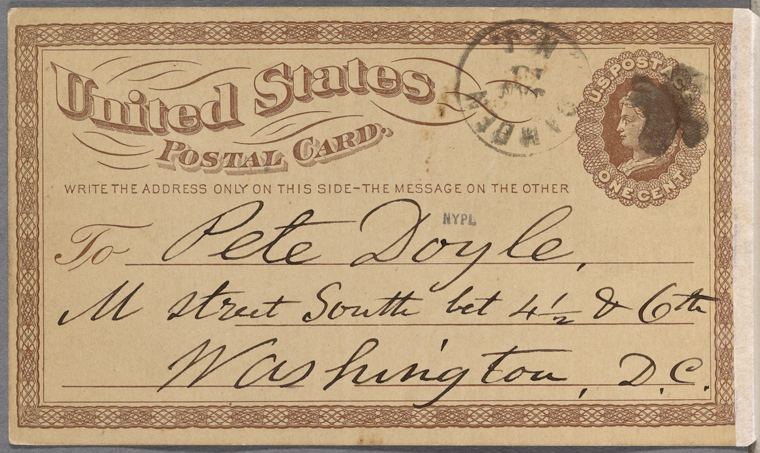 United States
POSTAL CARD.
CAMDEN N.J.
U.S. POSTAGE
ONE CENT
WRITE THE ADDRESS ONLY ON THIS SIDE-THE MESSAGE ON THE OTHER
NYPL
To Pete Doyle,
M street South bet 4½ & 6th
Washington, D.C.